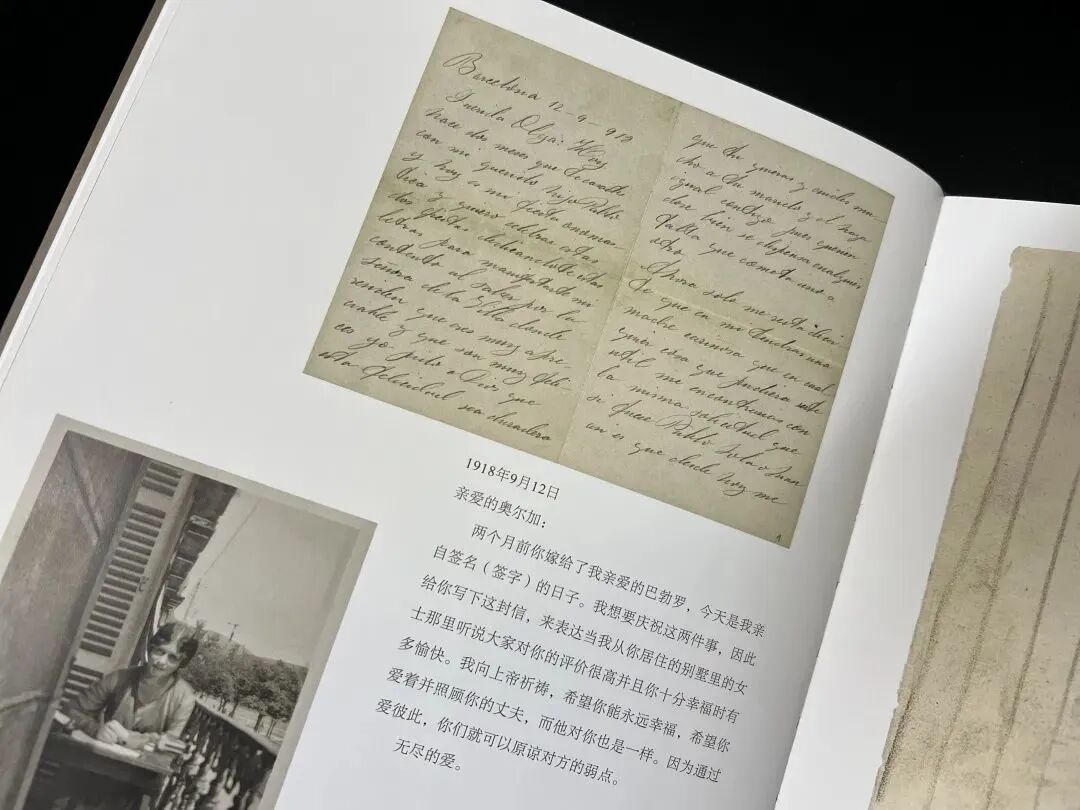 Barcelona 12-9-918
Querida Olga: Hoy
hace dos meses que te casaste
con mi querido hijo Pablo
y hoy es mi fiesta onomas
tica y quiero celebrar estas
dos fiestas dedicandote estas
letras para manifestarte mi
contento al saber por la
señora de la Villa donde
residen que eres muy apre
ciable y que son muy feli
ces yo pido a Dios que
esta felicidad sea duradera
que tu quieras y cuides mu
cho a tu marido y el haga
igual contigo pues querien
dose bien se dispensa cualquier
falta que cometa uno a
otro
Ahora solo me resta decir
te que en mi tendras una
madre cariñosa que en cual
quier cosa que pudiera serte
util me encontraras con
la misma solicitud que
si fuese Pablo Lola o Juan
un es que desde hoy me
1918年9月12日
亲爱的奥尔加：
两个月前你嫁给了我亲爱的巴勃罗，今天是我亲
自签名（签字）的日子。我想要庆祝这两件事，因此
给你写下这封信，来表达当我从你居住的别墅里的女
士那里听说大家对你的评价很高并且你十分幸福时有
多愉快。我向上帝祈祷，希望你能永远幸福，希望你
爱着并照顾你的丈夫，而他对你也是一样。因为通过
爱彼此，你们就可以原谅对方的弱点。
无尽的爱。